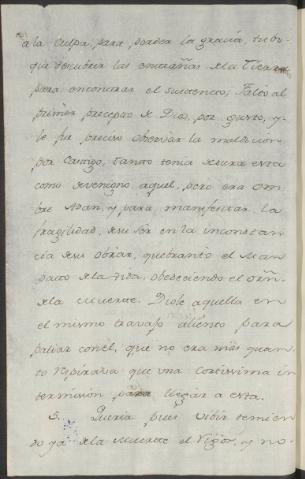 a la Culpa, para perder la gracia, tubo
que descubrir las entrañas de la Tierra
para encontrar el sustento; Faltó al
primer precepto de Dios, por gusto, y
le fue preciso observar la maldicion
por Castigo, tanto tenia de dura esta
como de benigno aquel, pero era om
bre Adan, y para manifestar la
fragilidad de su ser en la inconstan
cia de sus obras, quebrantó el Man
dato de la Vida, obedeciendo el orñ.
de la Muerte. Diole aquella en
el mismo travajo aliento para
paliar con el, que no era mas quan
to respiraba que una cortissima in
termission para llegar a esta.
3. Queria pues vivir temien
do ya de la Muerte el Rigor, y no